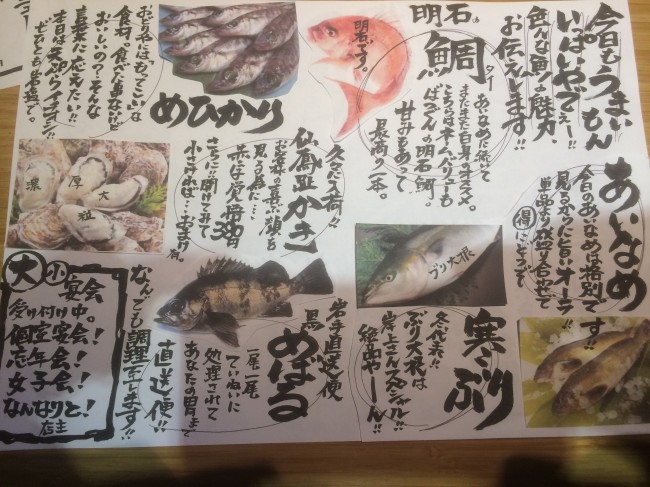 今日もうまいもん
いっぱいやでぇー!!
色んな魚の魅力、
お伝えします!!
あいなめ
今日のあいなめは格別です!!
見るからに旨いオーラ!!
単品でも盛り合わせで
得
明石
鯛
タイ
あいなめに続いて
またまた白身のオススメ。
こちらはネームバリューも
ばつぐんの明石鯛。
甘みもあって
最高の一本。
明石です。
めひかり
おどり本には、もってこいな
食材。食べた事ないけど
おいしいの?そんな
喜案に応えたい!!
本日は天ぷらイチオシ!!
仙鳳趾かき
久々に入荷!!
お客様の喜ぶ顔を
見る為に…
赤字覚悟
さらに!!開けてみて
小さければ…おまけ有。
濃
厚
大
粒
寒ぶり
冬代表!!
ぶり大根は
岸上さんスペシャル!!
絶品やーん!!
ブリ大根
岩手直送便
黒めばる
一尾一尾
ていねいに
処理されて
あなたの胃まで
直送便!!
なんでも調理致します!!
大小宴会
受け付け中。
個室宴会!
忘年会!
女子会!
なんなりと!
店主